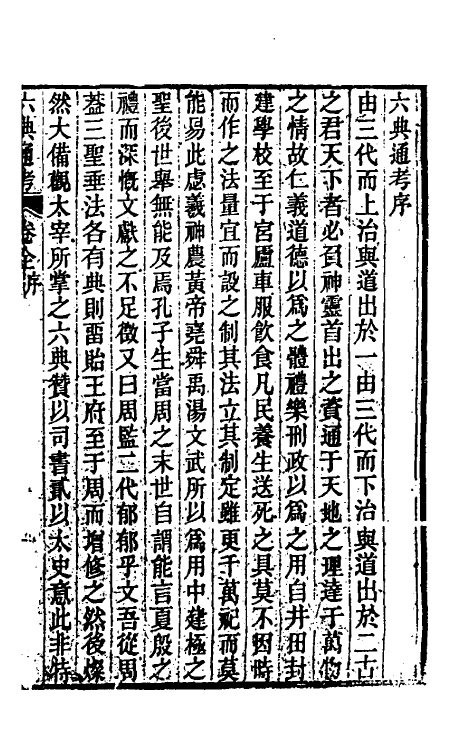 六典通考序
由三代而上治與道出於一由三代而下治與道出於二古
之君天下者必負神靈首出之資通于天地之理達于萬物
之情故仁義道德以爲之體禮樂刑政以爲之用自井田封
建學校至于宮廬車服飲食凡民養生送死之具莫不因時
而作之法量宜而設之制其法立其制定雖更千萬祀而莫
能易此虙羲神農黃帝堯舜禹湯文武所以爲用中建極之
聖後世舉無能及焉孔子生當周之末世自謂能言夏殷之
禮而深慨文獻之不足徵又曰周監二代郁郁乎文吾從周
葢三聖垂法各有典則畱貽王府至于周而增修之然後燦
然大備觀太宰所掌之六典贊以司書貳以太史意此非特
六典通考 卷全序